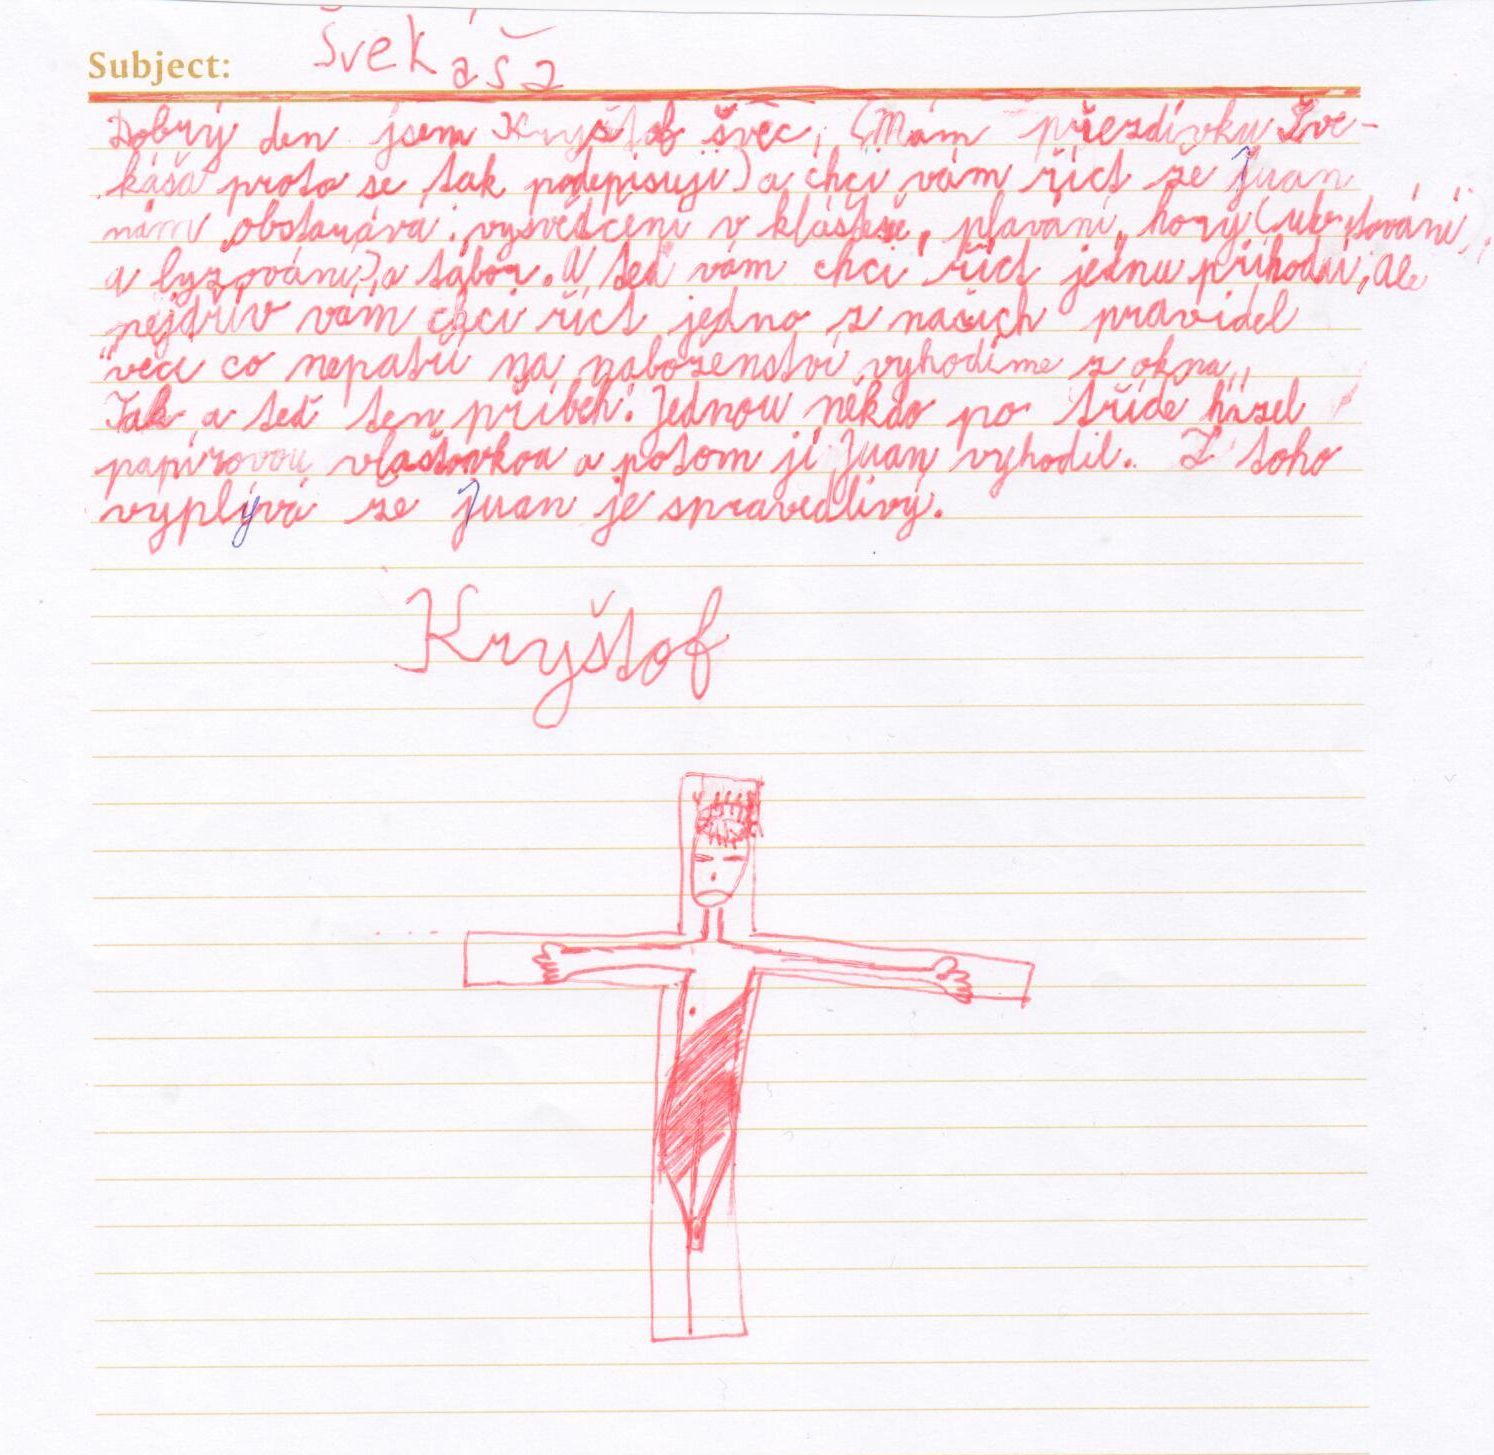 Subject: Švekáša
Dobrý den jsem Kryštof švec, (Mám přezdívku Šve-
káša proto se tak podepisuji) a chci vám říct že Juan
nám obstarává: vysvědčení v klášteře, plavání, hory (ubytování
a lyžování), a tábor. A teď vám chci říct jednu příhodu, ale
nejdřív vám chci říct jedno z našich pravidel
věci co nepatří na náboženství vyhodíme z okna,,
Tak a teď ten příběh: Jednou někdo po třídě házel
papírovou vlaštovkou a potom ji Juan vyhodil. Z toho
vyplývá že Juan je spravedlivý.
Kryštof